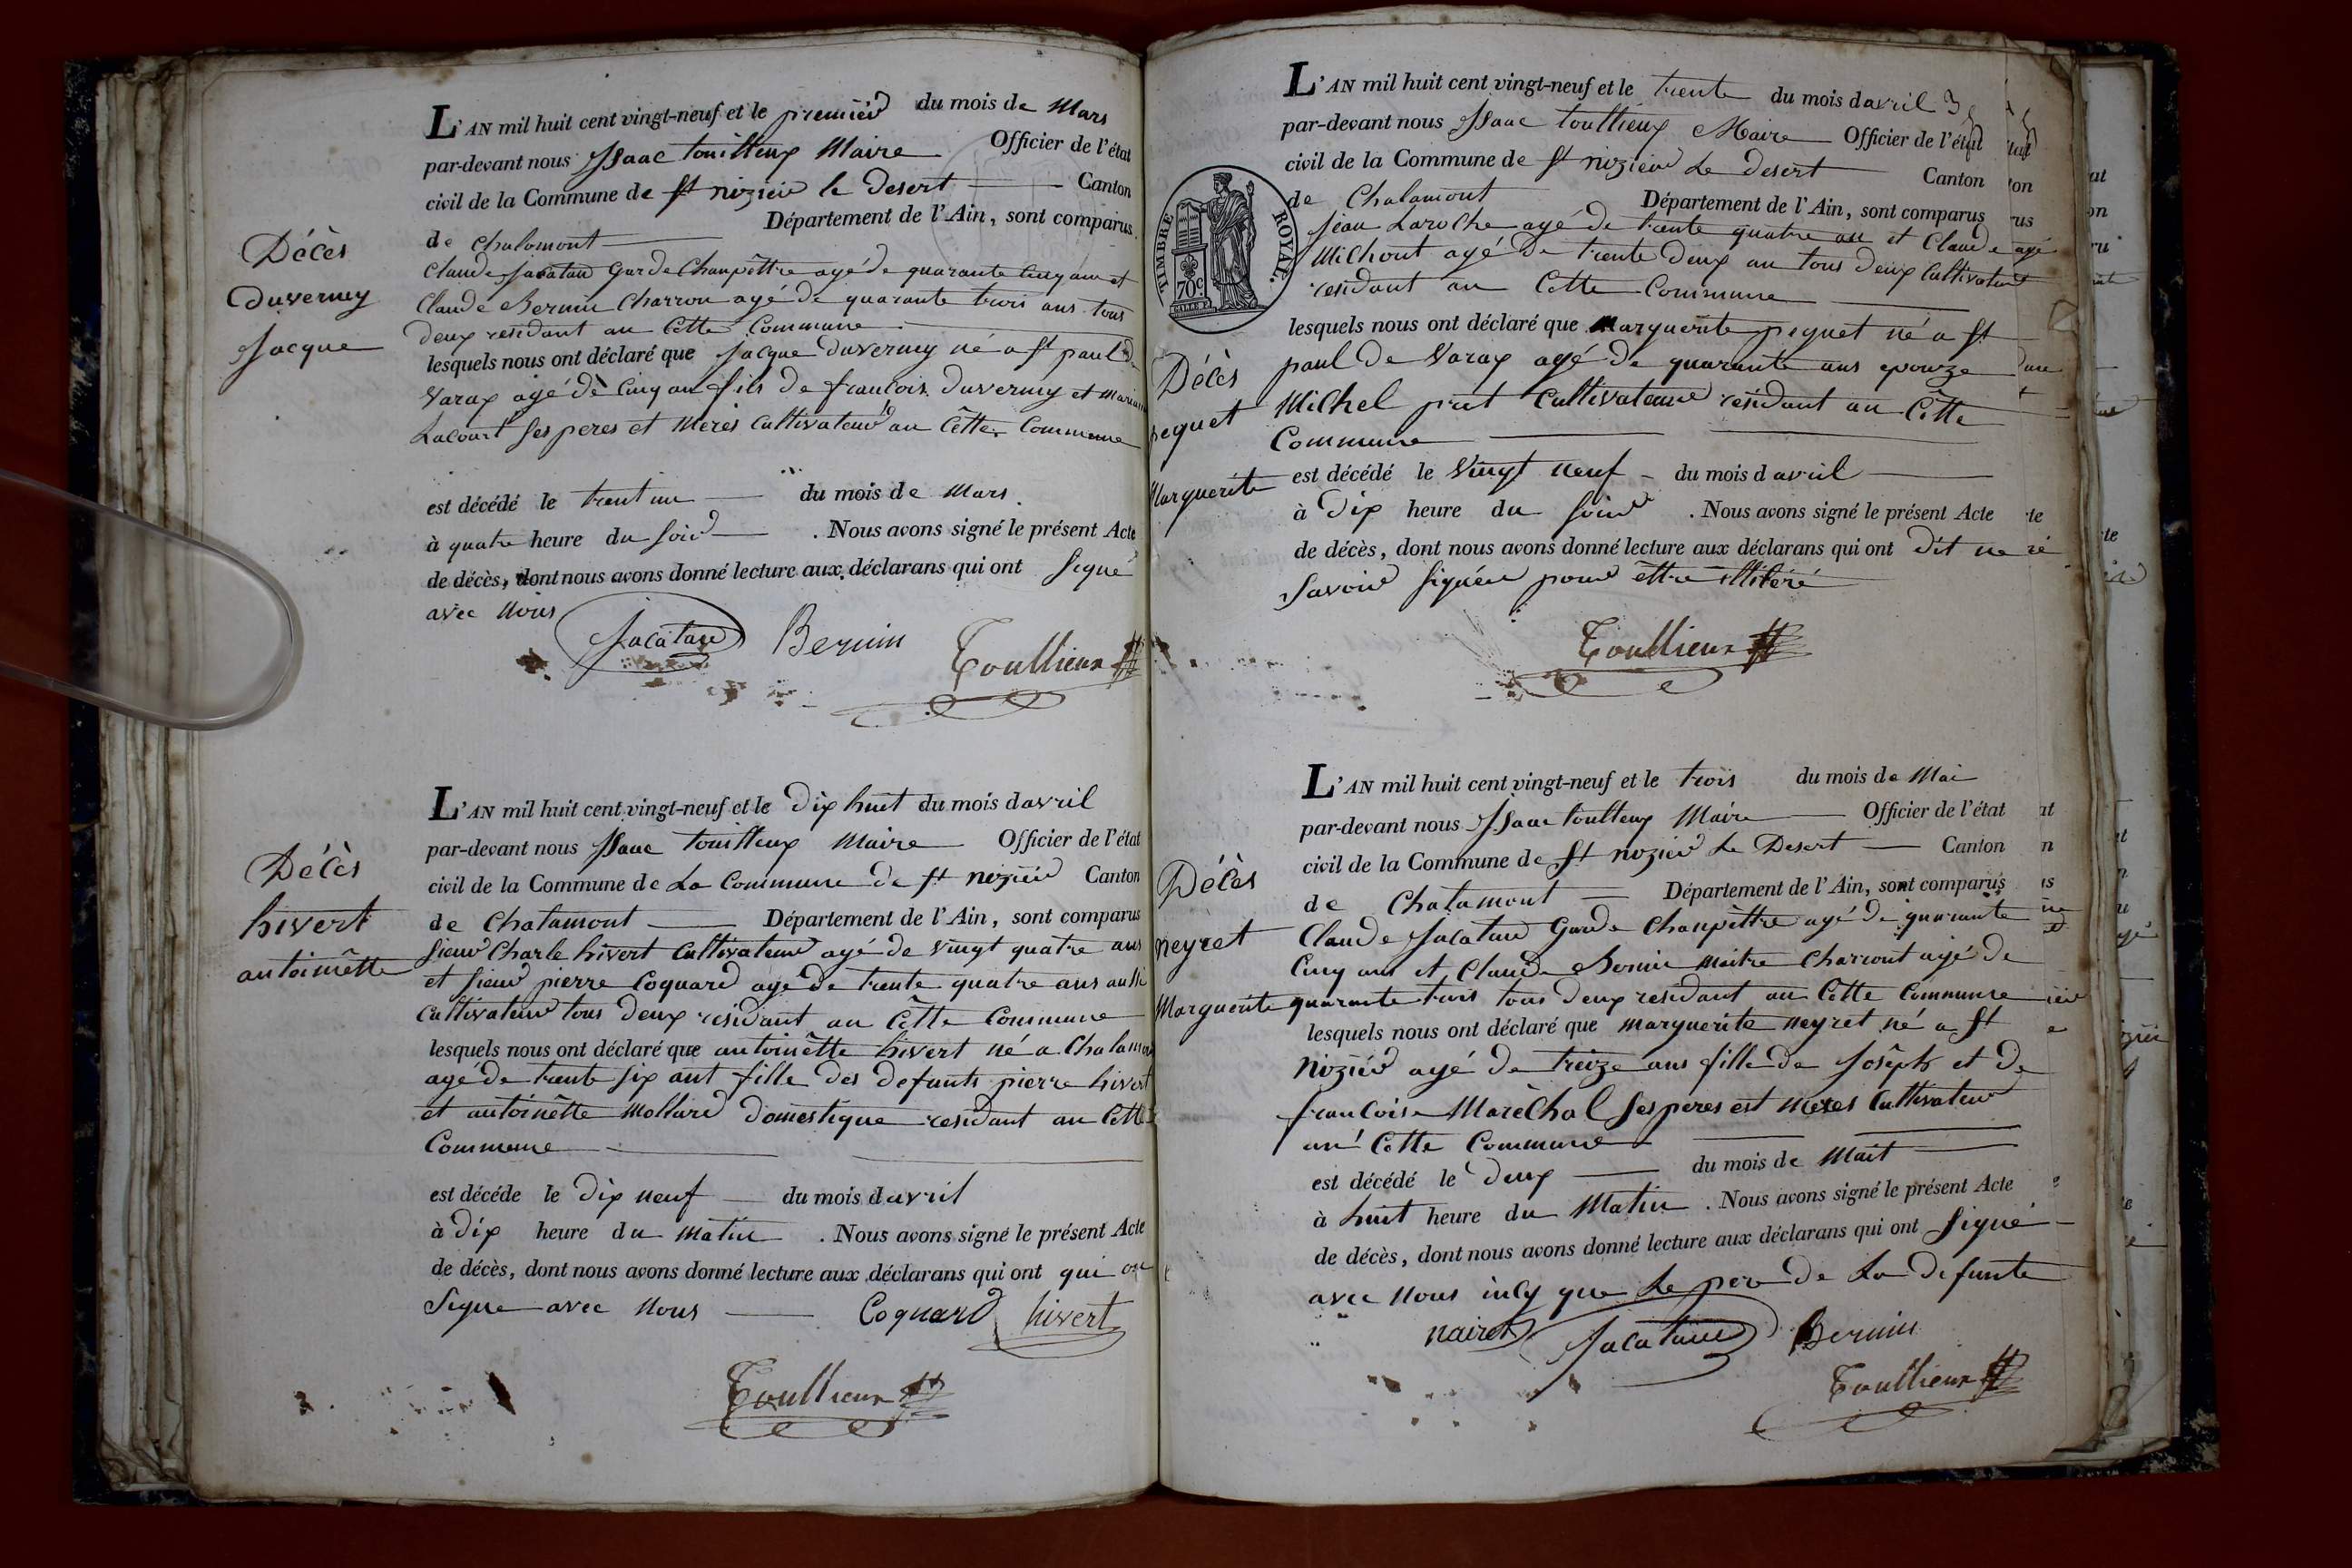 L'AN mil huit cent vingt-neuf et le premier du mois de Mars
par-devant nous Isaac touillieux Maire Officier de l'état
civil de la Commune de st nizier le desert Canton
de chalamont Département de l'Ain, sont comparus
Claude Jacatard Garde Champêttre agé de quarante cinq ans et
Claude Bernin Charron agé de quarante trois ans tous
deux residant an Cette Commune
lesquels nous ont déclaré que Jacque duverney né a st paul de
Varax agé de Cinq an fils de francois duverney et
Lacourt ses peres et Meres Cultivateur an Cette Commune
est décédé le trentun du mois de Mars
à quatre heure du soir . Nous avons signé le présent Acte
de décès, dont nous avons donné lecture aux déclarans qui ont signé
avec Nous
Bernin
Toullieux
Décès
duverney
Jacque
L'AN mil huit cent vingt-neuf et le dix huit du mois davril
par-devant nous Isaac touillieux Maire Officier de l'état
civil de la Commune de La Commune de st nizier Canton
de Chalamont Département de l'Ain, sont comparus
sieur Charle hivert Cultivateur agé de vingt quatre ans
et sieur pierre Coquard agé de trente quatre ans aussi
Cultivateur tous deux residant an Cette Commune
lesquels nous ont déclaré que antoinêtte hivert né a Chalamont
agé de trente six ant fille des defunts pierre hivert
et antoinêtte Mollard domestique residant an Cette
Commune
est décédé le dix neuf du mois davril
à dix heure du matin . Nous avons signé le présent Acte
de décès, dont nous avons donné lecture aux déclarans qui ont qui on
Signe avec Nous Coquard hivert
Toullieux
Décès
hivert
antoinêtte
TIMBRE ROYAL
70c
L'AN mil huit cent vingt-neuf et le trente du mois davril
par-devant nous Isaac toullieux Maire Officier de l'état
civil de la Commune de st nizier Le desert Canton
de Chalamont Département de l'Ain, sont comparus
Jean Laroche agé de trente quatre an et Claude
Michout agé de trente deux an tous deux Cultivateur
residant an Cette Commune
lesquels nous ont déclaré que Marguerite pequet né a st
paul de Varax agé de quarante ans epouze
Michel prit Cultivateur residant an Cette
Commune
est décédé le Vingt neuf du mois davril
à dix heure du soir . Nous avons signé le présent Acte
de décès, dont nous avons donné lecture aux déclarans qui ont dit ne
savoir signer pour êttre illiteré
Toullieux
Décès
pequet
Marguerite
L'AN mil huit cent vingt-neuf et le trois du mois de Mai
par-devant nous Isaac toullieux Maire Officier de l'état
civil de la Commune de st nizier Le Desert Canton
de Chalamont Département de l'Ain, sont comparus
Claude Jacatard Garde Champêttre agé de quarante
Cinq ans et Claude Bernin Maitre Charront agé de
quarante trois tous deux residant an Cette Commune
lesquels nous ont déclaré que marguerite neyret né a st
Nizier agé de treize ans fille de Josêph et de
francoise Maréchal ses peres est meres Cultivateur
an Cette Commune
est décédé le deux du mois de Mait
à huit heure du Matin . Nous avons signé le présent Acte
de décès, dont nous avons donné lecture aux déclarans qui ont Signé
avec Nous que Le pere de La defunte
nairet Bernin
Toullieux
Décès
neyret
Marguerite